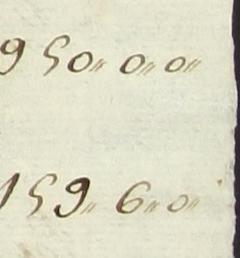 950" 0" 0"
159" 6" 0"